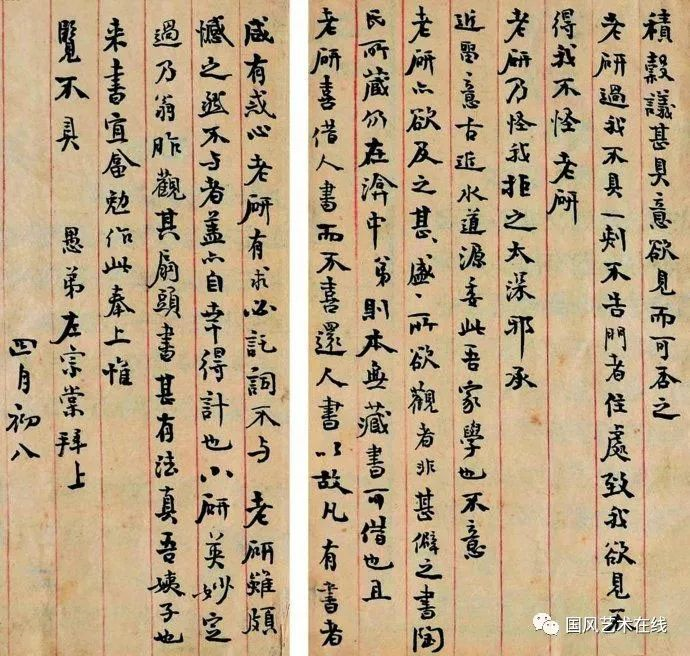 積穀議甚具意欲見而可否之
老研過我不具一刺不告門者住處致我欲見不
得我不怪老研
老研乃怪我拒之太深邪承
近留意古近水道源委此吾家學也不意
老研亦欲及之甚盛甚盛所欲觀者非甚僻之書陶
氏所藏仍在渰中弟則本無藏書可借也且
老研喜借人書而不喜還人書以故凡有書者
咸有惑心老研有求必託詞不与老研雖頗
憾之然不与者蓋亦自幸得計也小研英妙定
過乃翁昨觀其扇頭書甚有法真吾姨子也
来書宜畬勉作此奉上惟
覽不具 愚弟左宗棠拜上
四月初八
国风艺术在线